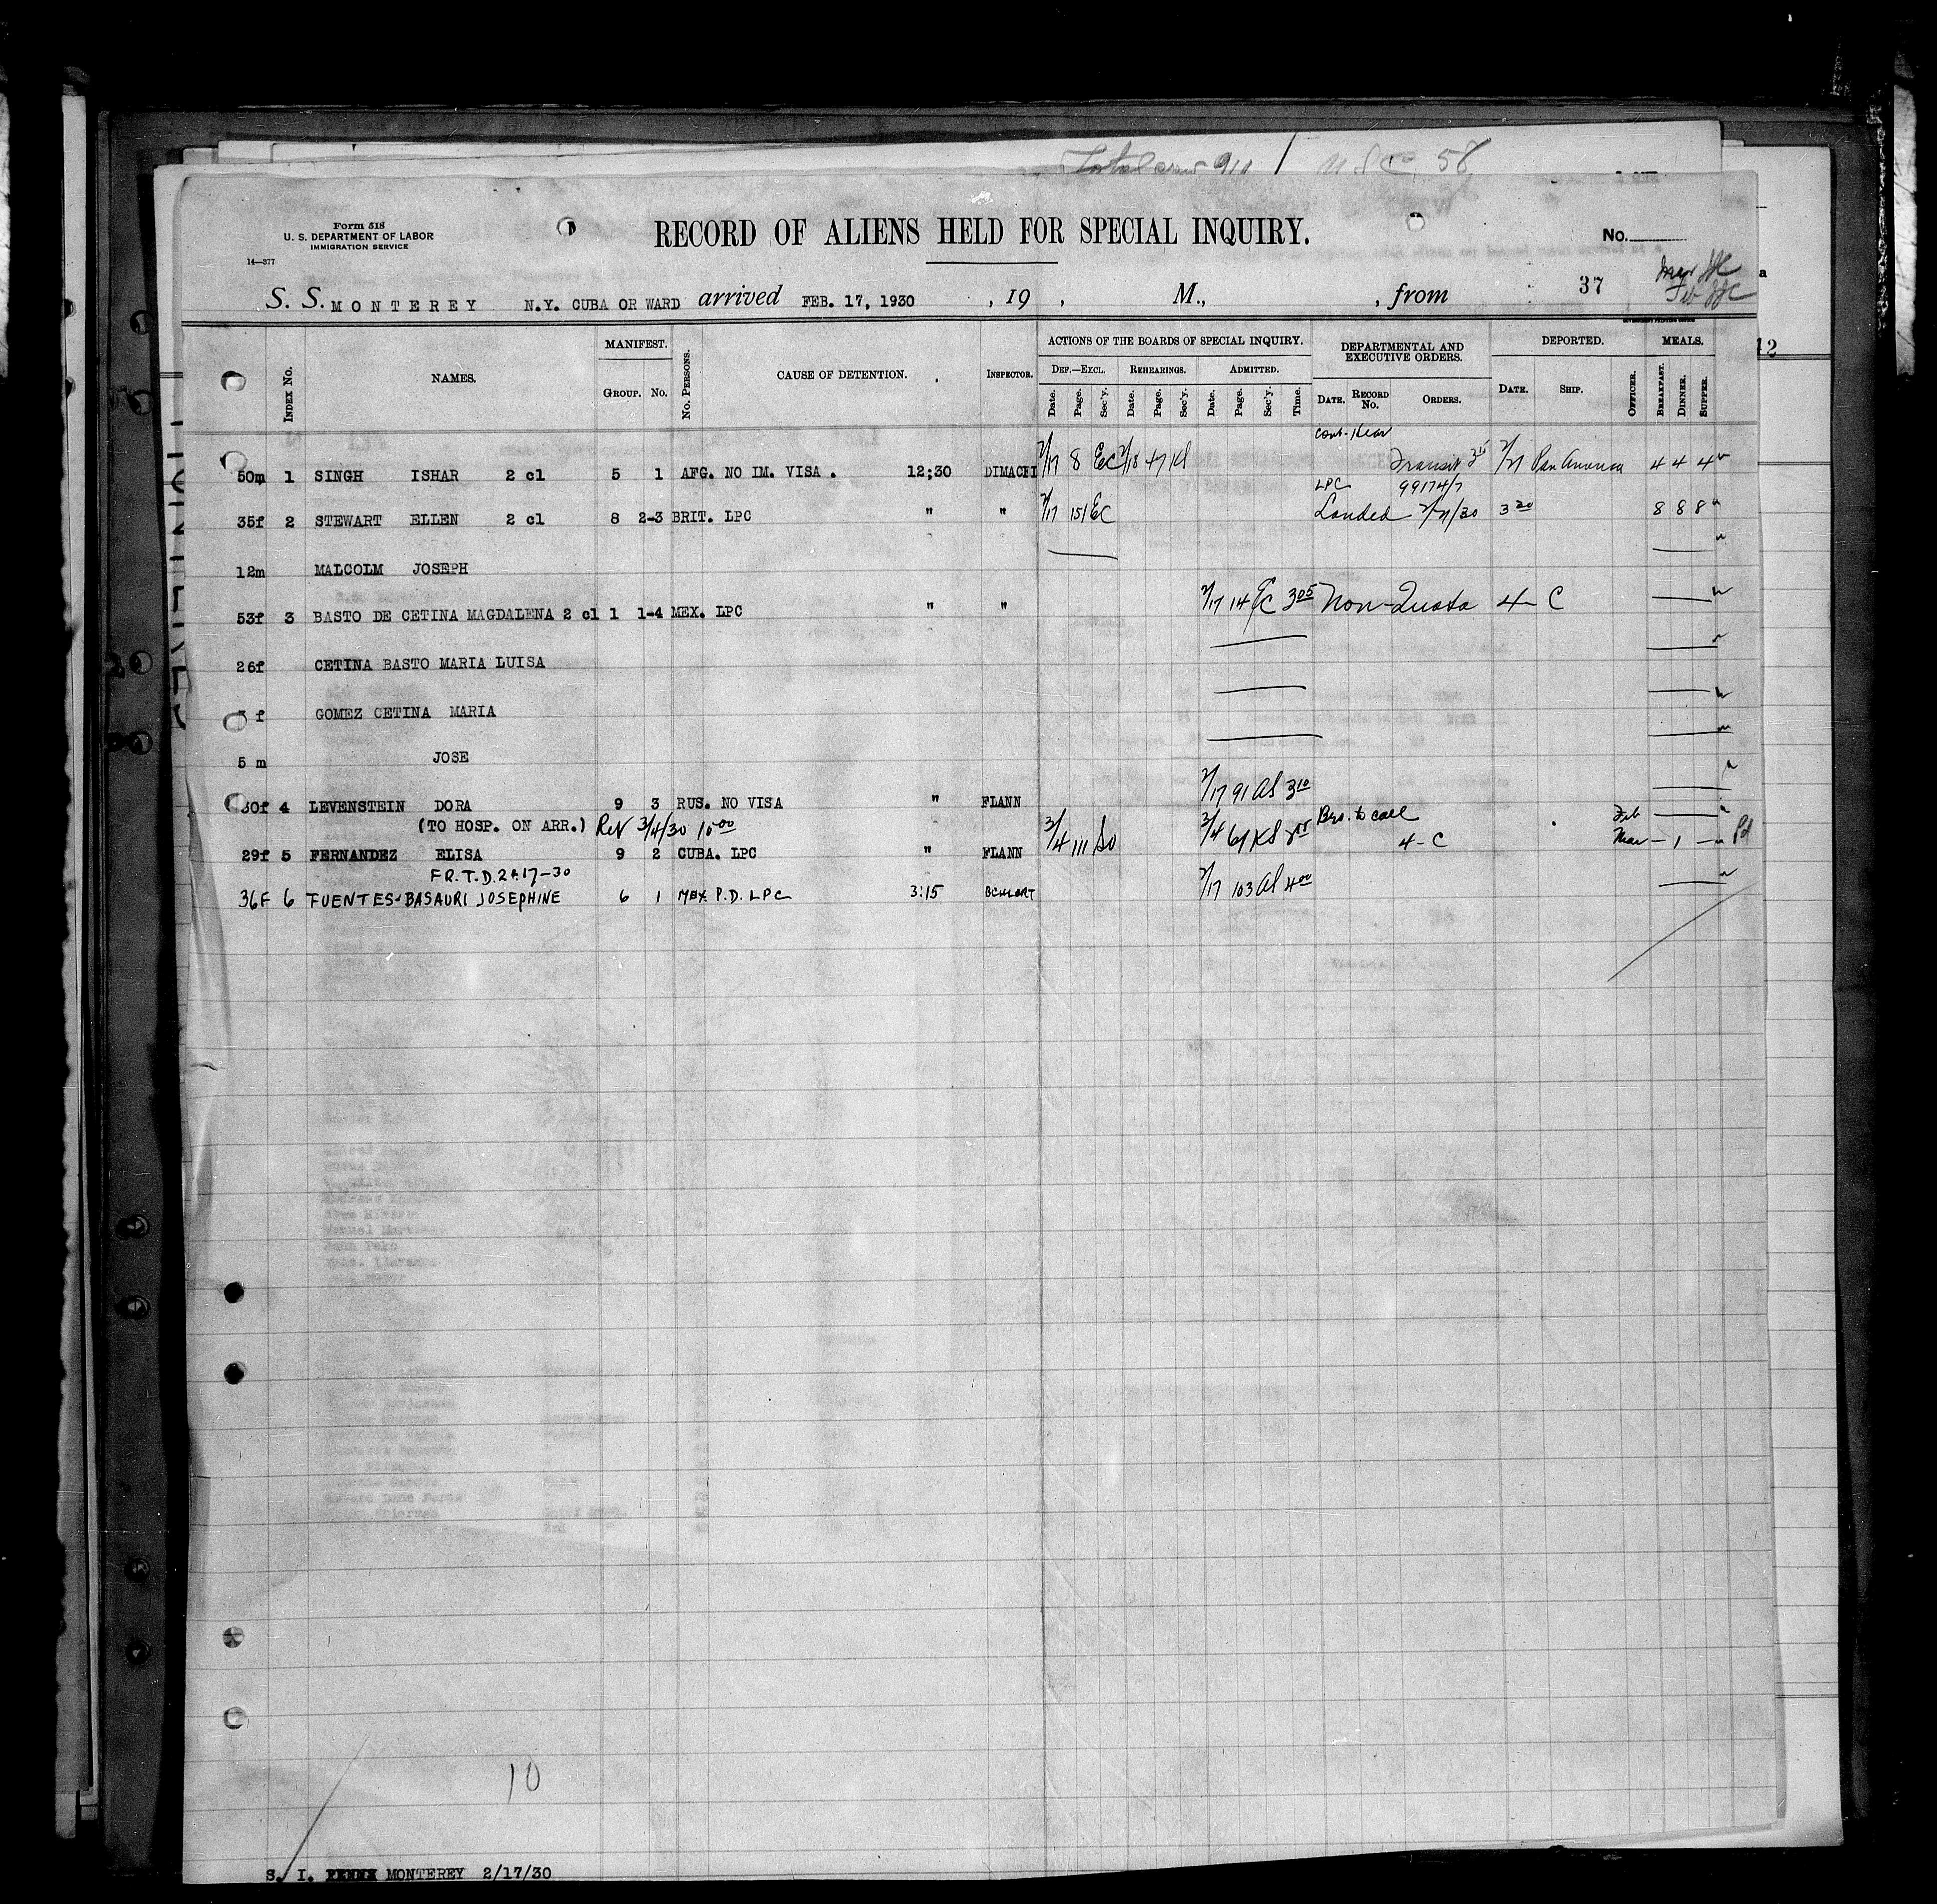 Total crew 911 / U.S.C. 58
Form 518
U. S. DEPARTMENT OF LABOR
IMMIGRATION SERVICE
14—377
RECORD OF ALIENS HELD FOR SPECIAL INQUIRY.
No.
S. S. MONTEREY N.Y. CUBA OR WARD arrived FEB. 17, 1930 , 19 , M., , from 37
MANIFEST. ACTIONS OF THE BOARDS OF SPECIAL INQUIRY. DEPARTMENTAL AND EXECUTIVE ORDERS. DEPORTED. MEALS.
INDEX No. NAMES. GROUP. No. No. PERSONS. CAUSE OF DETENTION. INSPECTOR. DEF.—EXCL. REHEARINGS. ADMITTED.
Date. Page. Sec'y. Date. Page. Sec'y. Date. Page. Sec'y. Time. DATE. RECORD No. ORDERS. DATE. SHIP. OFFICER. BREAKFAST. DINNER. SUPPER.
50m 1 SINGH ISHAR 2 cl 5 1 AFG. NO IM. VISA . 12;30 DIMACHI 2/17 8 EC 2/18 47 Kl Transit 2/21 Pan America 4 4 4
LPC 99174/7
35f 2 STEWART ELLEN 2 cl 8 2-3 BRIT. LPC " " 2/17 151 EC Landed 2/21/30 3 20 8 8 8
12m MALCOLM JOSEPH
53f 3 BASTO DE CETINA MAGDALENA 2 cl 1 1-4 MEX. LPC " " 2/17 14 EC 3 05 Non-Quota 4 - C
26f CETINA BASTO MARIA LUISA
f GOMEZ CETINA MARIA
5 m JOSE
30f 4 LEVENSTEIN DORA 9 3 RUS. NO VISA " FLANN 2/17 91 Al 3 10
(TO HOSP. ON ARR.) Rev 3/4/30 10 00 Bro. to call Feb
29f 5 FERNANDEZ ELISA 9 2 CUBA. LPC " FLANN 3/4 111 So 3/4 61 KS 4-C Mar — 1 — Pd
FR. T.D. 2-17-30
36F 6 FUENTES-BASAURI JOSEPHINE 6 1 MEX. P.D. LPC 3:15 2/17 103 Al 4 00
10
S. I. MONTEREY 2/17/30